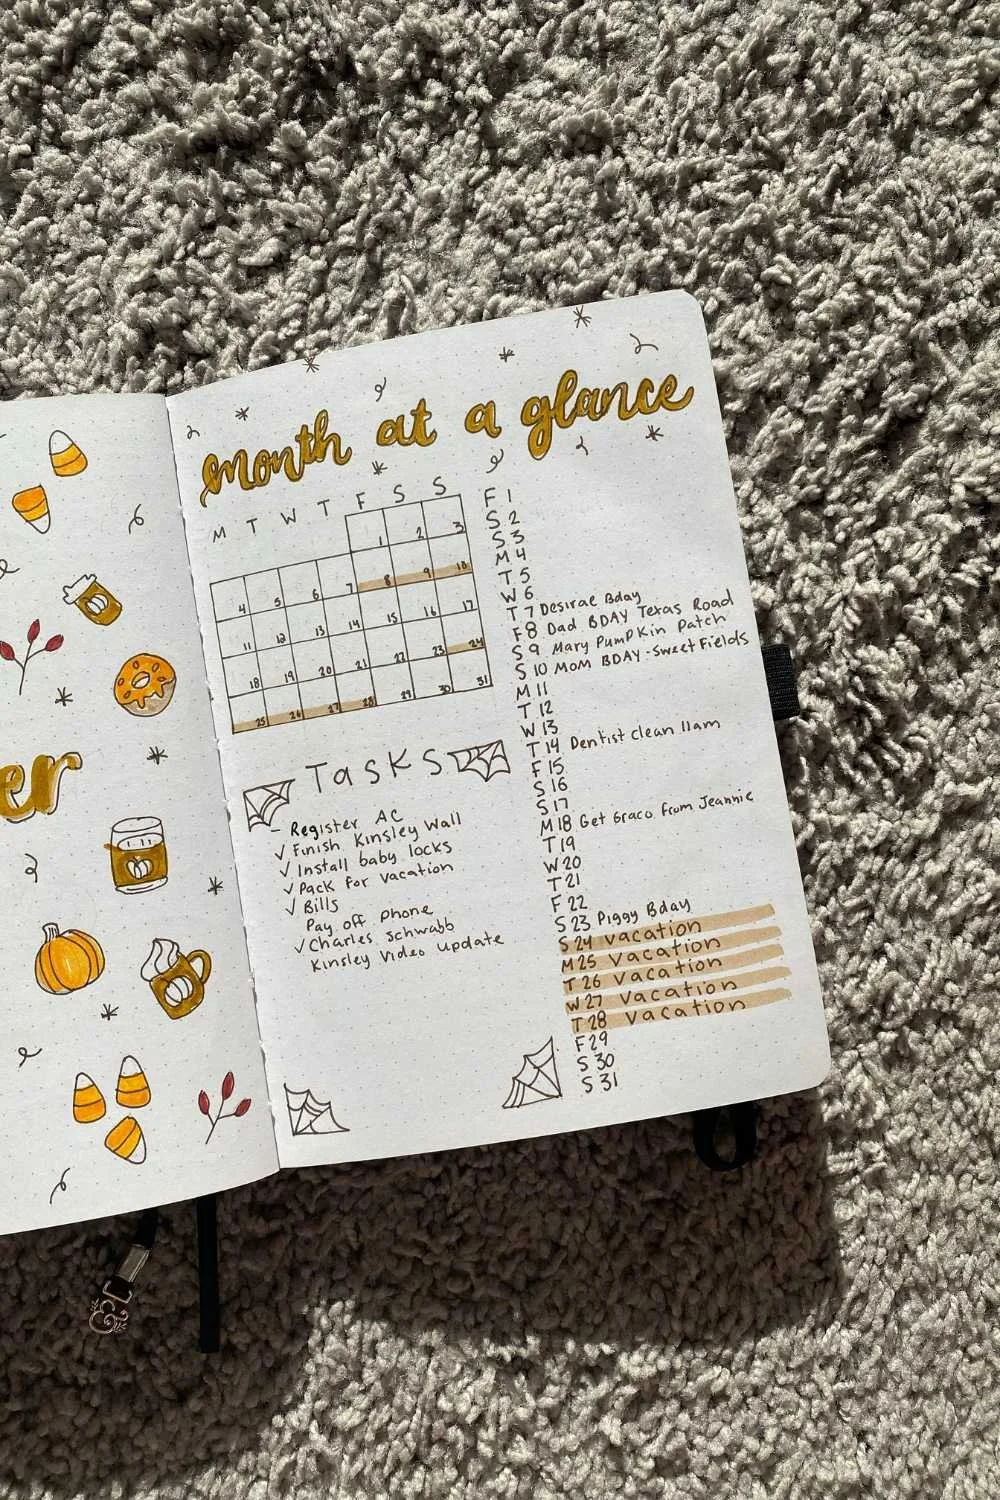 er
month at a glance
M T W T F S S
1 2 3
4 5 6 7 8 9 10
11 12 13 14 15 16 17
18 19 20 21 22 23 24
25 26 27 28 29 30 31
Tasks
- Register AC
✓ Finish Kinsley Wall
✓ Install baby locks
✓ Pack for vacation
✓ Bills
Pay off phone
✓ Charles Schwabb
Kinsley Video update
F 1
S 2
S 3
M 4
T 5
W 6
T 7 Desirae Bday
F 8 Dad BDAY Texas Road
S 9 Mary Pumpkin Patch
S 10 Mom BDAY - Sweet Fields
M 11
T 12
W 13
T 14 Dentist clean 11am
F 15
S 16
S 17
M 18 Get Graco from Jeannie
T 19
W 20
T 21
F 22
S 23 Piggy Bday
S 24 Vacation
M 25 Vacation
T 26 Vacation
W 27 Vacation
T 28 Vacation
F 29
S 30
S 31